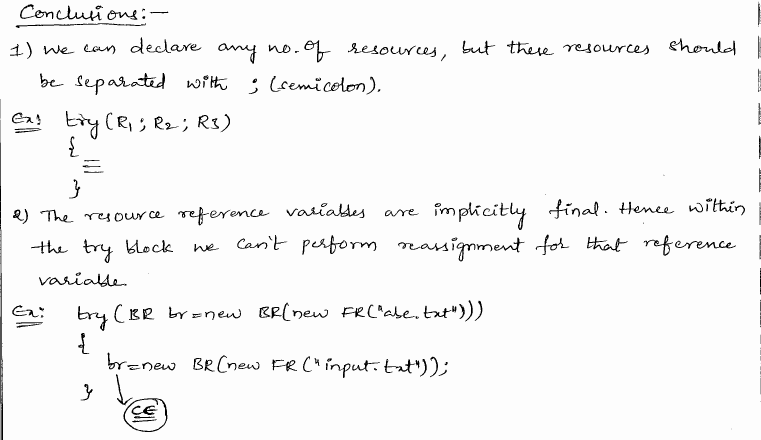 Conclusions:-
1) We can declare any no. of resources, but these resources should
be separated with ; (semicolon).
Ex: try(R1; R2; R3)
{
≡
}
2) The resource reference variables are implicitly final. Hence within
the try block we can't perform reassignment for that reference
variable.
Ex: try(BR br=new BR(new FR("abc.txt")))
{
br=new BR(new FR("input.txt"));
}
CE